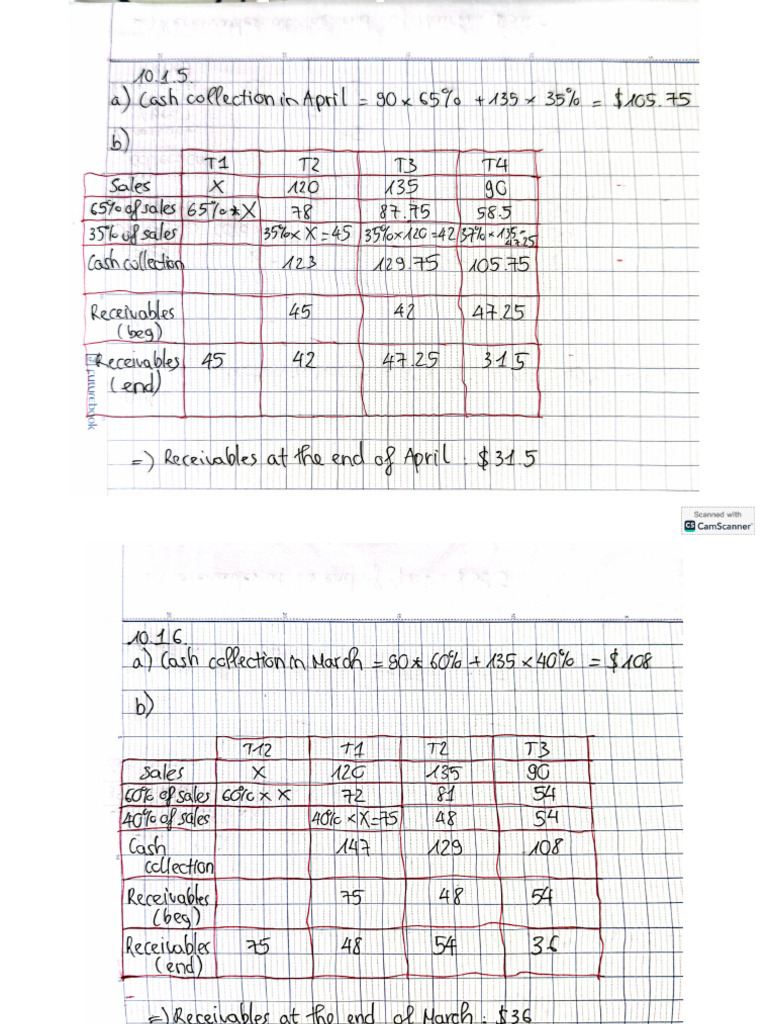 10.1.5.
a) Cash collection in April = 90 × 65% + 135 × 35% = $105.75
b)
T1 T2 T3 T4
Sales X 120 135 90
65% of sales 65% * X 78 87.75 58.5
35% of sales 35% × X = 45 35% × 120 = 42 37% × 135 = 47.25
Cash collection 123 129.75 105.75
Receivables (beg) 45 42 47.25
Receivables (end) 45 42 47.25 31.5
futurebook
=) Receivables at the end of April : $31.5
Scanned with
CS CamScanner
10.1.6.
a) Cash collection in March = 90 * 60% + 135 × 40% = $108
b)
T12 T1 T2 T3
Sales X 120 135 90
60% of sales 60% × X 72 81 54
40% of sales 40% × X = 75 48 54
Cash collection 147 129 108
Receivables (beg) 75 48 54
Receivables (end) 75 48 54 36
=) Receivables at the end of March : $36